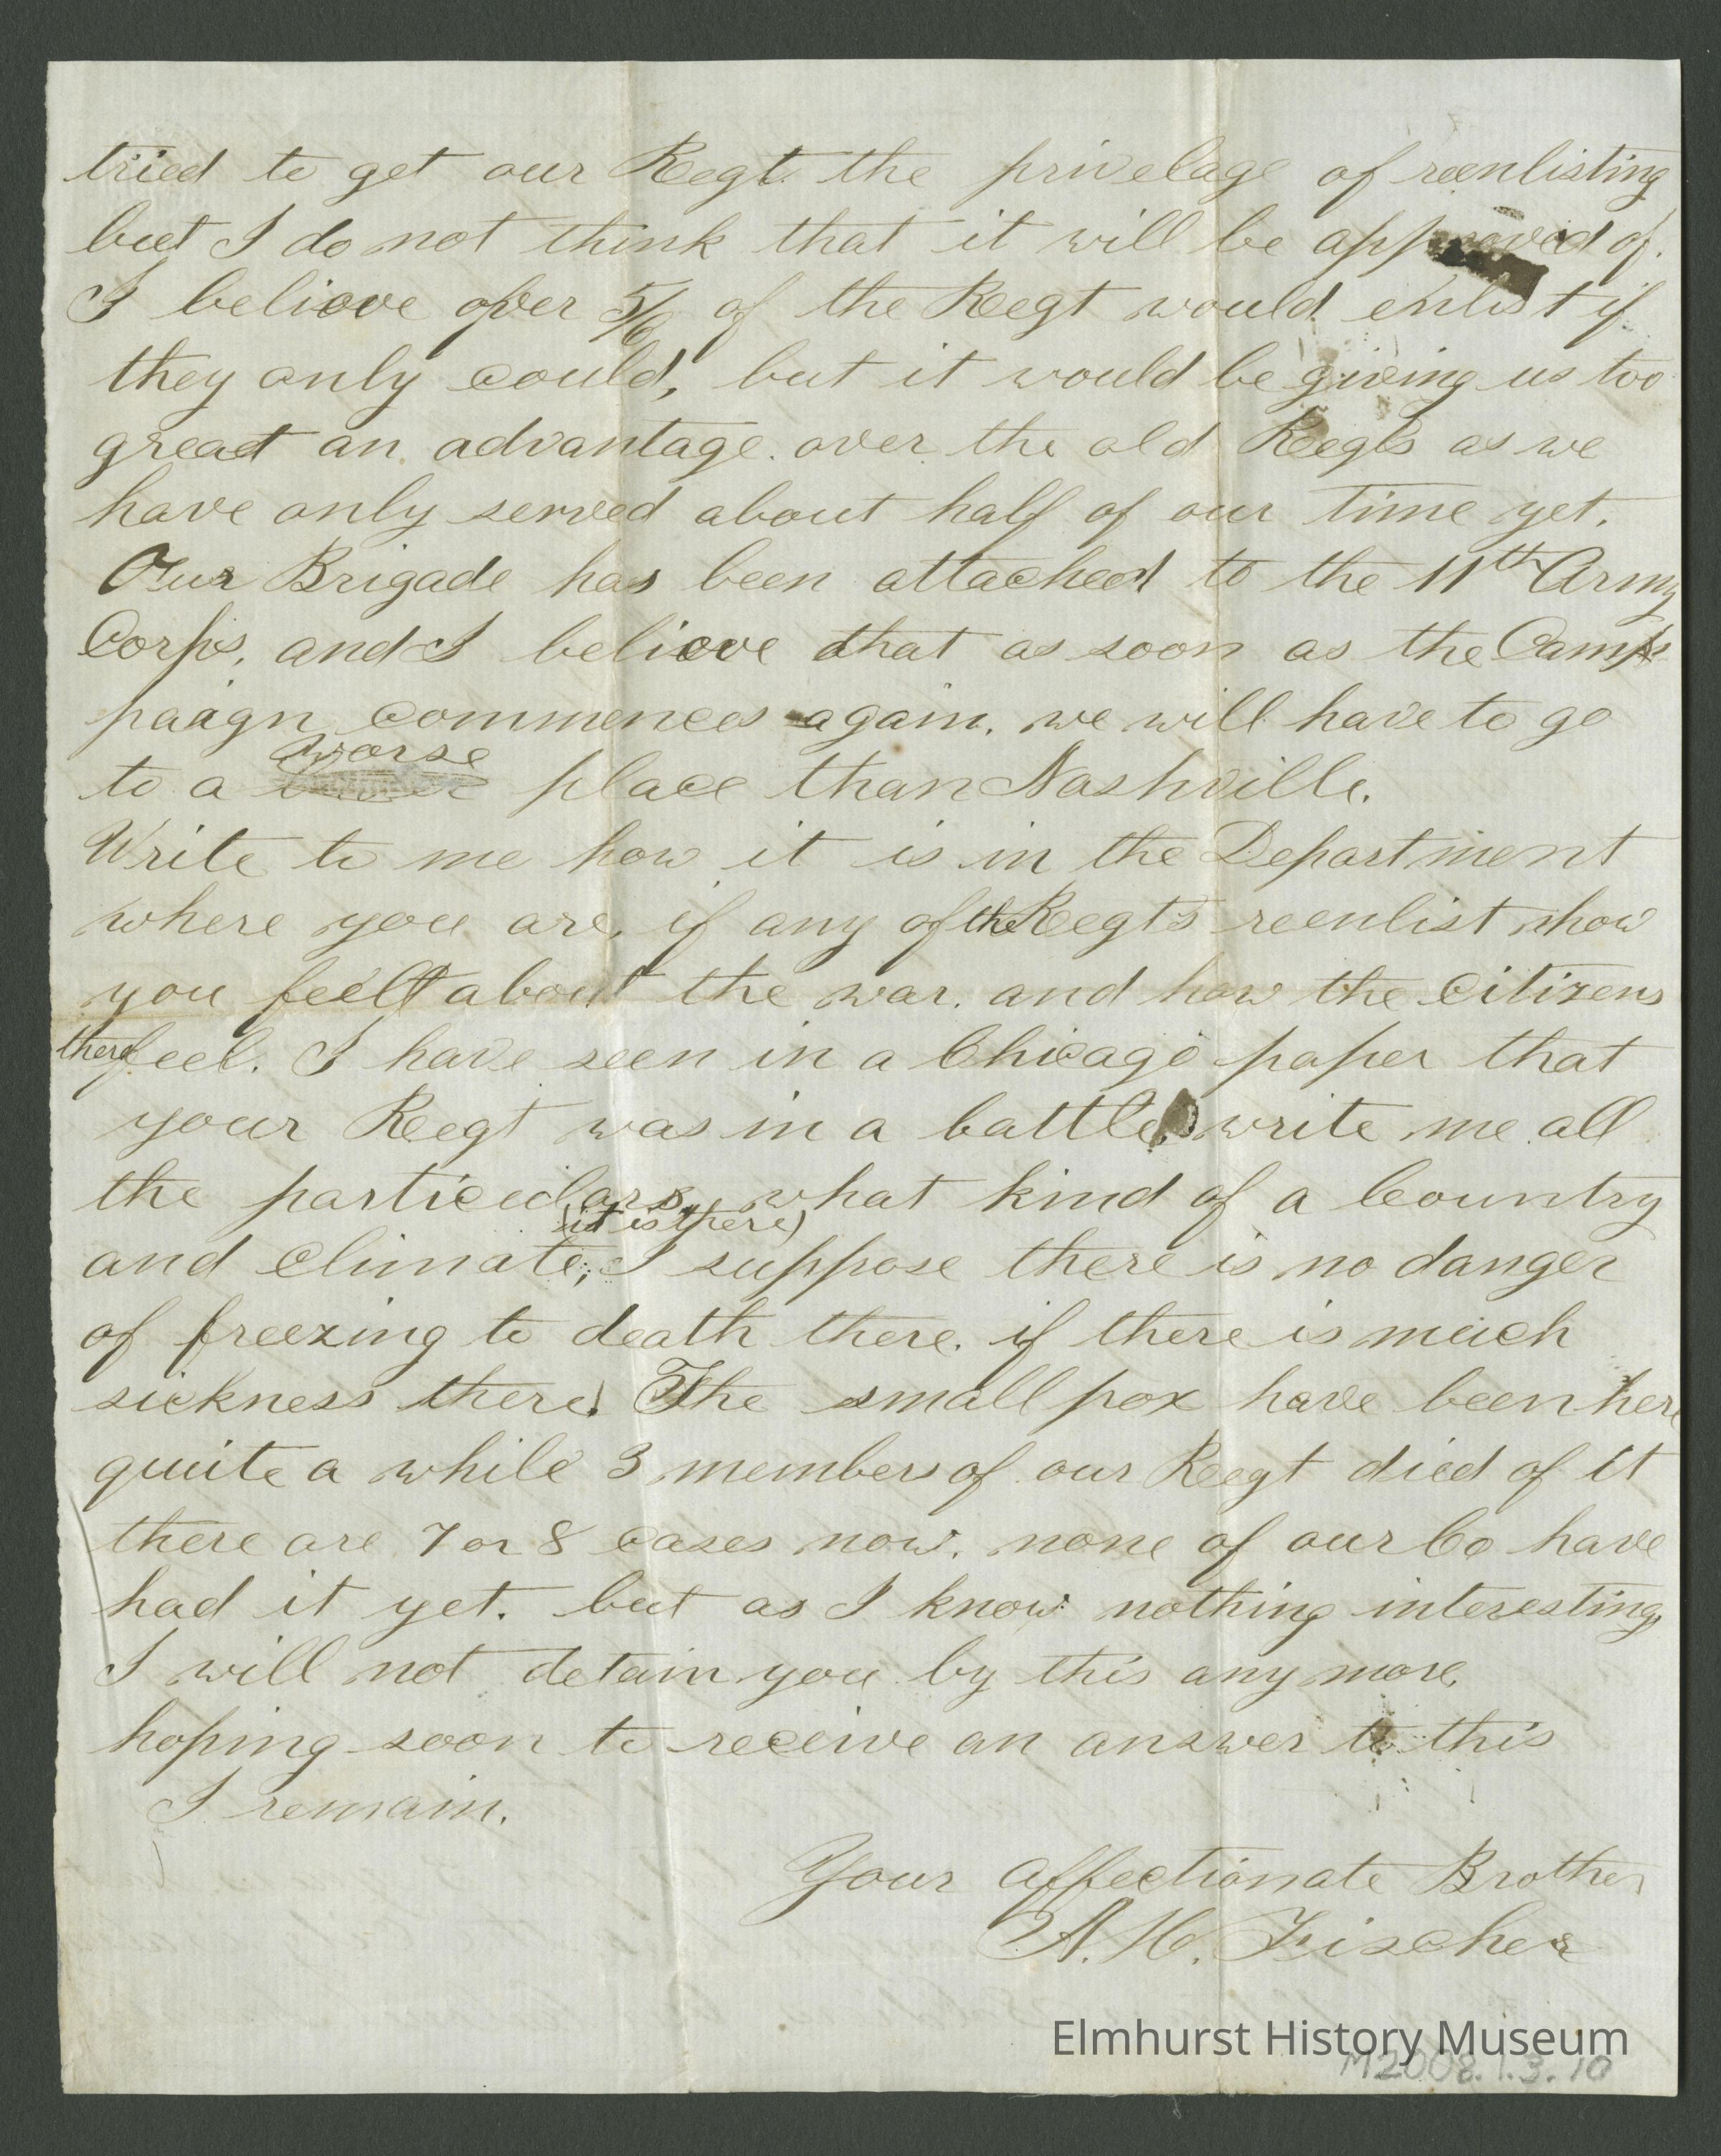 tried to get our Regt. the privelage of reenlisting
but I do not think that it will be approved of.
I believe over 5/6 of the Regt would enlist if
they only could, but it would be giving us too
great an advantage over the old Regts as we
have only served about half of our time yet.
Our Brigade has been attached to the 11th Army
Corps, and I believe that as soon as the Camp
paign commences again, we will have to go
worse
to a place than Nashville.
Write to me how it is in the Department
where you are, if any of the Regts reenlist, how
you feel about the war, and how the citizens
there feel. I have seen in a Chicago paper that
your Regt was in a battle, write me all
the particulars, what kind of a Country
(it is there)
and climate; I suppose there is no danger
of freezing to death there. if there is much
sickness there. The small pox have been here
quite a while 3 members of our Regt died of it
there are 7 or 8 cases now. none of our Co have
had it yet. but as I know nothing interesting,
I will not detain you by this any more,
hoping soon to receive an answer to this
I remain.
Your affectionate Brother
A. H. Fischer
Elmhurst History Museum
M2008.1.3.10